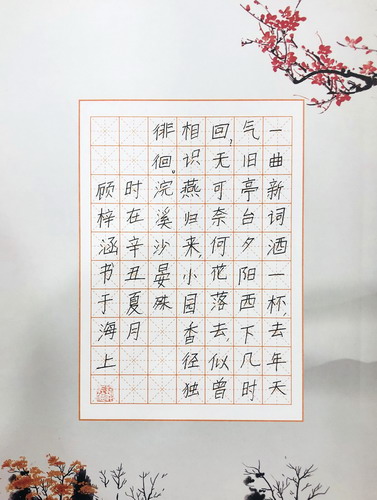 一曲新词酒一杯,去年天
气旧亭台夕阳西下几时
回,无可奈何花落去,似曾
相识燕归来,小园香径独
徘徊。浣溪沙晏殊
时在辛丑夏月
顾梓涵书于海上